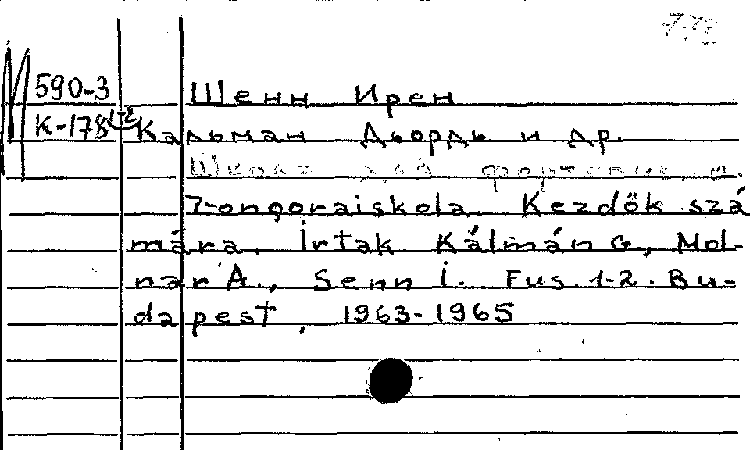 590-3 Шенн Ирен
К-178 1-2 Кальман Дьордь и др.
Школа для фортепиано.
Zongoraiskola. Kezdők szá
mára. Írtak Kálmán G., Mol-
nar A., Senn I. Fus. 1-2. Bu-
dapest, 1963-1965